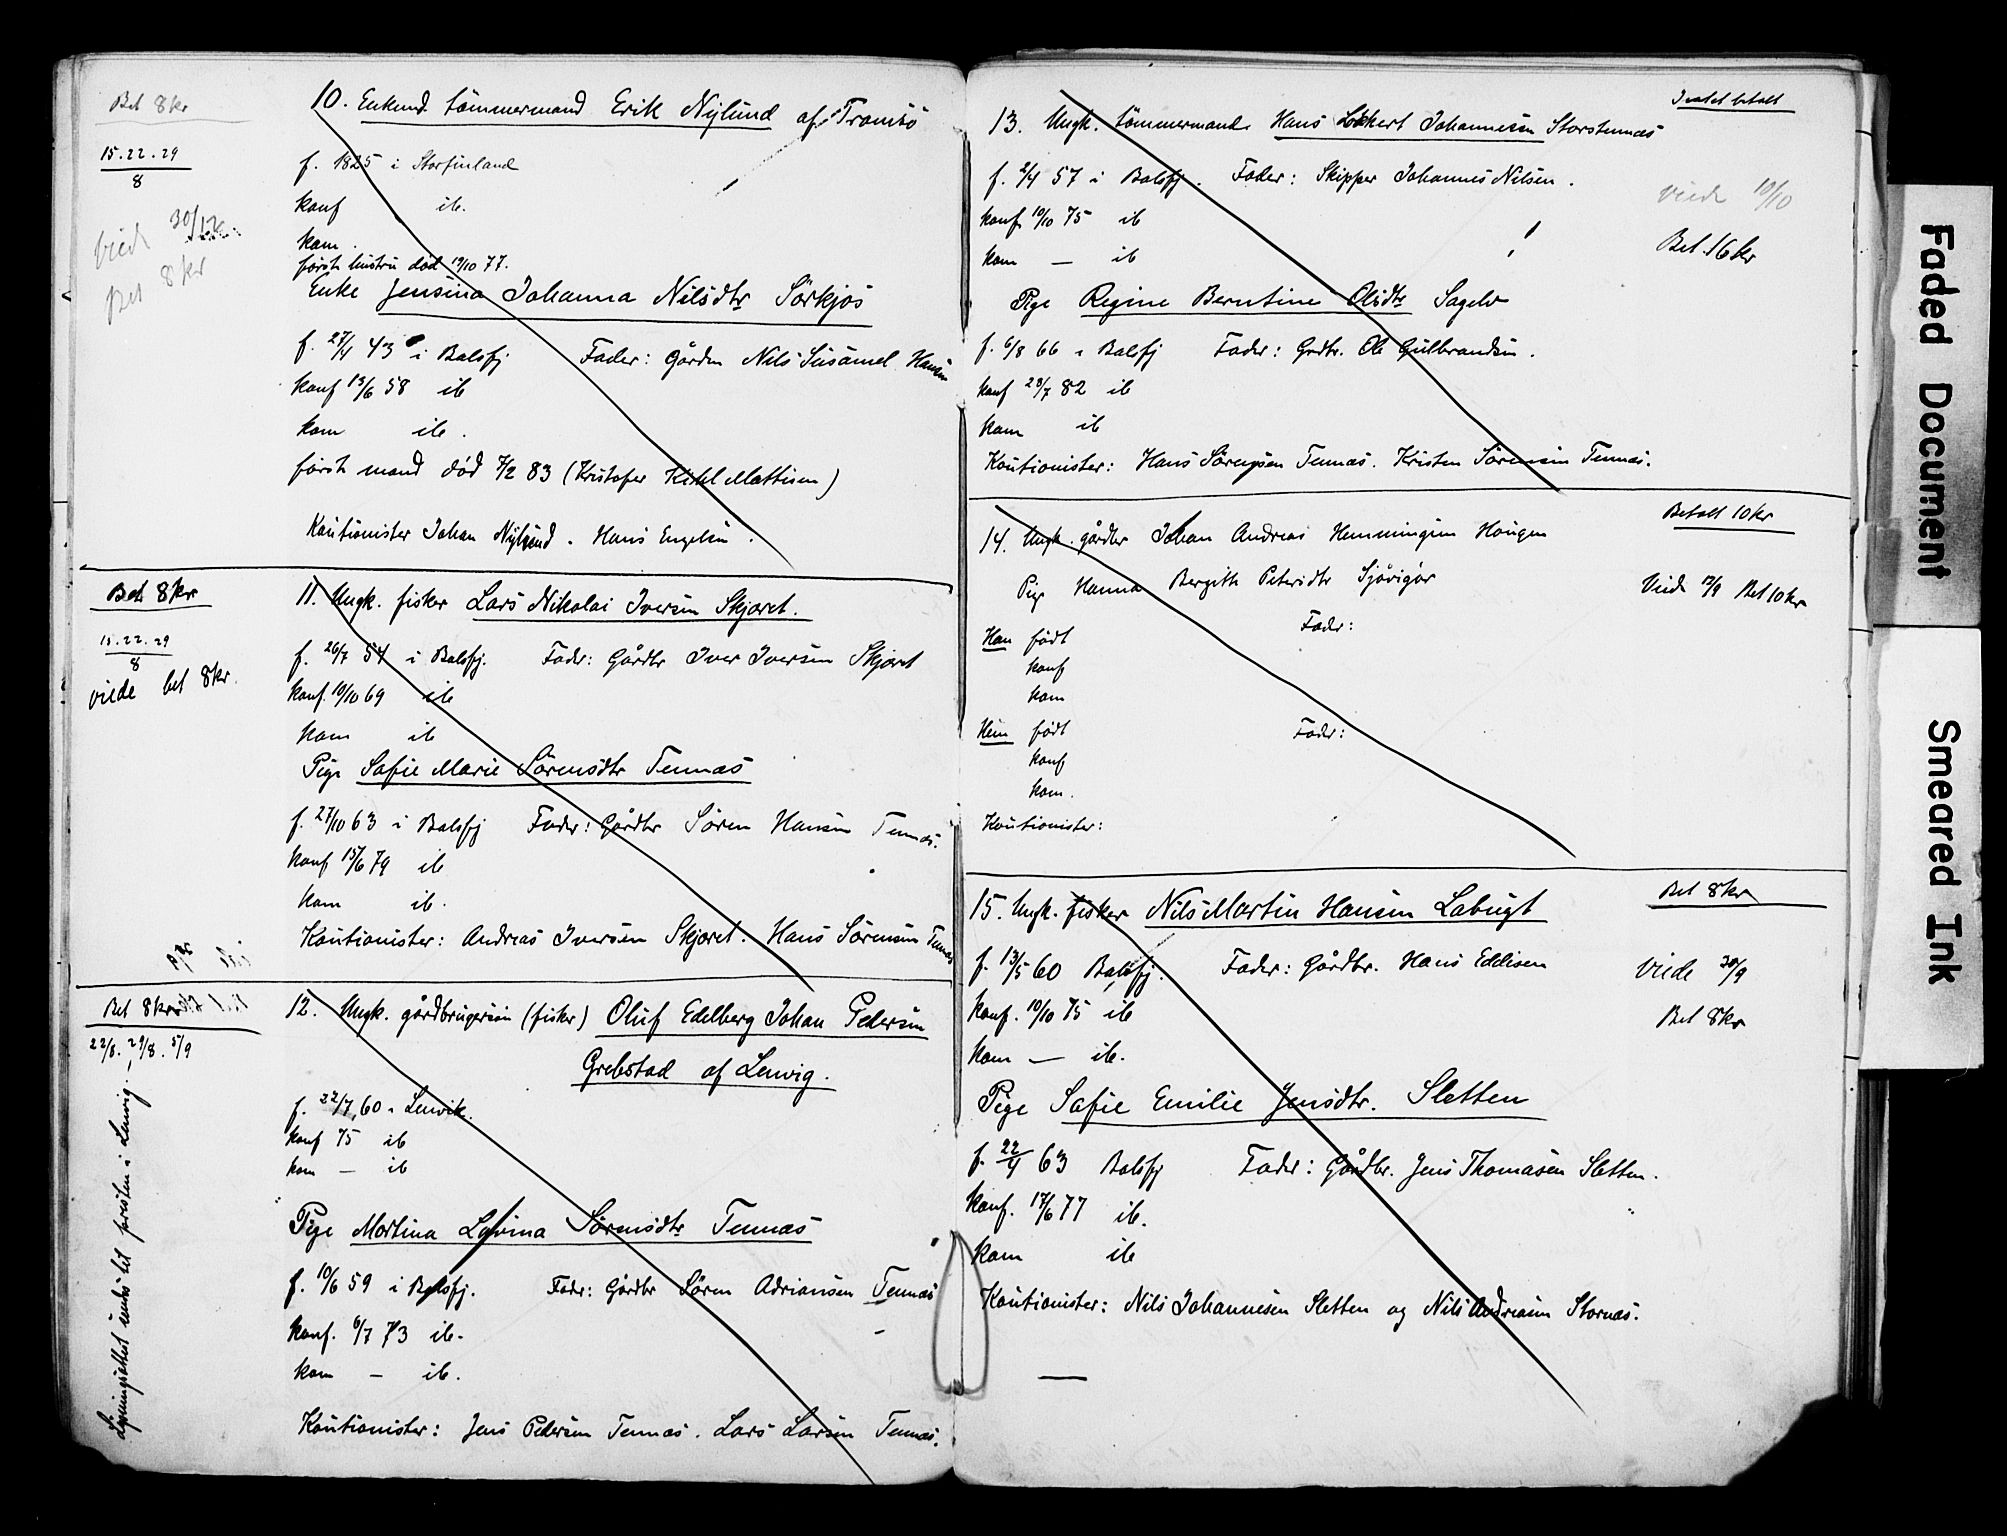 Bet 8 kr
15.22.29
8
viede 30/12
Bet 8 kr
10. Enkemd tömmermand Erik Nylund af Tromsö
f. 1825 i Storfinland
konf ib.
kom.
förste hustru död 19/10 77.
Enke Jensina Johanna Nilsdtr Sörkjos
f. 27/4 43 i Balsfj Fader: Gårdm Nils Susamel Hansen
konf 13/6 58 ib
kom ib.
förste mand död 7/2 83 (Kristofer Kihl Mattisen)
Kautionister Johan Nylund. Hans Engelsen.
Bet 8 kr
15.22.29
8
viede bet 8 kr.
11. Ungk. fisker Lars Nikolai Iversen Skjæret.
f. 26/7 54 i Balsfj. Fader: Gårdbr Iver Iversen Skjæret
konf. 10/10 69 ib
kom ib
Pige Safie Marie Sörensdtr Tennæs
f. 27/10 63 i Balsfj Fader: Gårdbr Sören Hansen Tennæs.
konf 15/6 79 ib
kom ib.
Kautionister: Andreas Iversen Skjæret. Hans Sörensen Tennæs
Bet 8 kr
22/8. 29/8. 5/9
Lysningsattest undertet presten i Lenvig
12. Ungk. gårdbrugersön (fisker) Oluf Edelberg Johan Pedersen
Grebstad af Lenvig.
f. 22/7 60 i Lenvik.
konf 75 ib
kom — ib
Pige Martina Lovina Sörensdtr Tennæs
f. 10/6 59 i Balsfj. Fader: Gårdbr Sören Adriansen Tennæs
konf. 6/7 73 ib.
kom — ib.
Kautionister: Jens Pedersen Tennæs. Lars Larsen Tennæs.
13. Ungk. tömmermand Hans Lockert Johannesen Storstennæs
betalt
f. 2/4 57 i Balsfj. Fader: Skipper Johannes Nilsen.
viede 10/10
konf 10/10 75 ib
kom — ib
Bet. 16 kr
Pige Regine Berntine Olsdtr Sagelv
f. 6/8 66 i Balsfj Fader: Grdbr. Ole Gulbrandsen.
konf 23/7 82 ib
kom ib
Kautionister: Hans Sörensen Tennæs. Kristen Sörensen Tennæs.
Betalt 10 kr
14. Ungk. gårdbr Johan Andreas Hemmingsen Haugen
Pige Hanna Bergith Petersdtr Sjövigör
Viede 12/9 Bet 10 kr
Han födt Fader:
konf
kom
Hun födt Fader:
konf
kom.
Kautionister:
15. Ungk. fisker Nils Martin Hansen Labugt
Bet 8 kr
f. 13/5 60 Balsfj. Fader: Gårdbr. Hans Edisen
Viede 30/9
konf. 10/10 75 ib
Bet 8 kr
kom — ib.
Pige Safie Emilie Jensdtr. Sletten
f. 22/4 63 Balsfj Fader: Gårdbr. Jens Thomasen Sletten.
konf. 17/6 77 ib.
kom ib
Kautionister: Nils Johannesen Sletten og Nils Andreasen Stornæs.
Faded Document
Smeared Ink